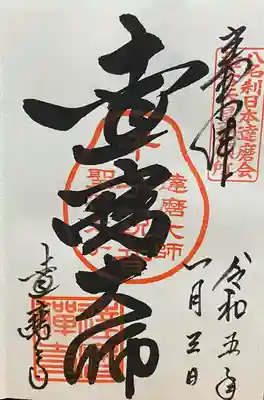 八名刹日本達磨会
奉拝
達磨大師
達磨大師
聖徳太子
令和五年
一月三日
達磨寺